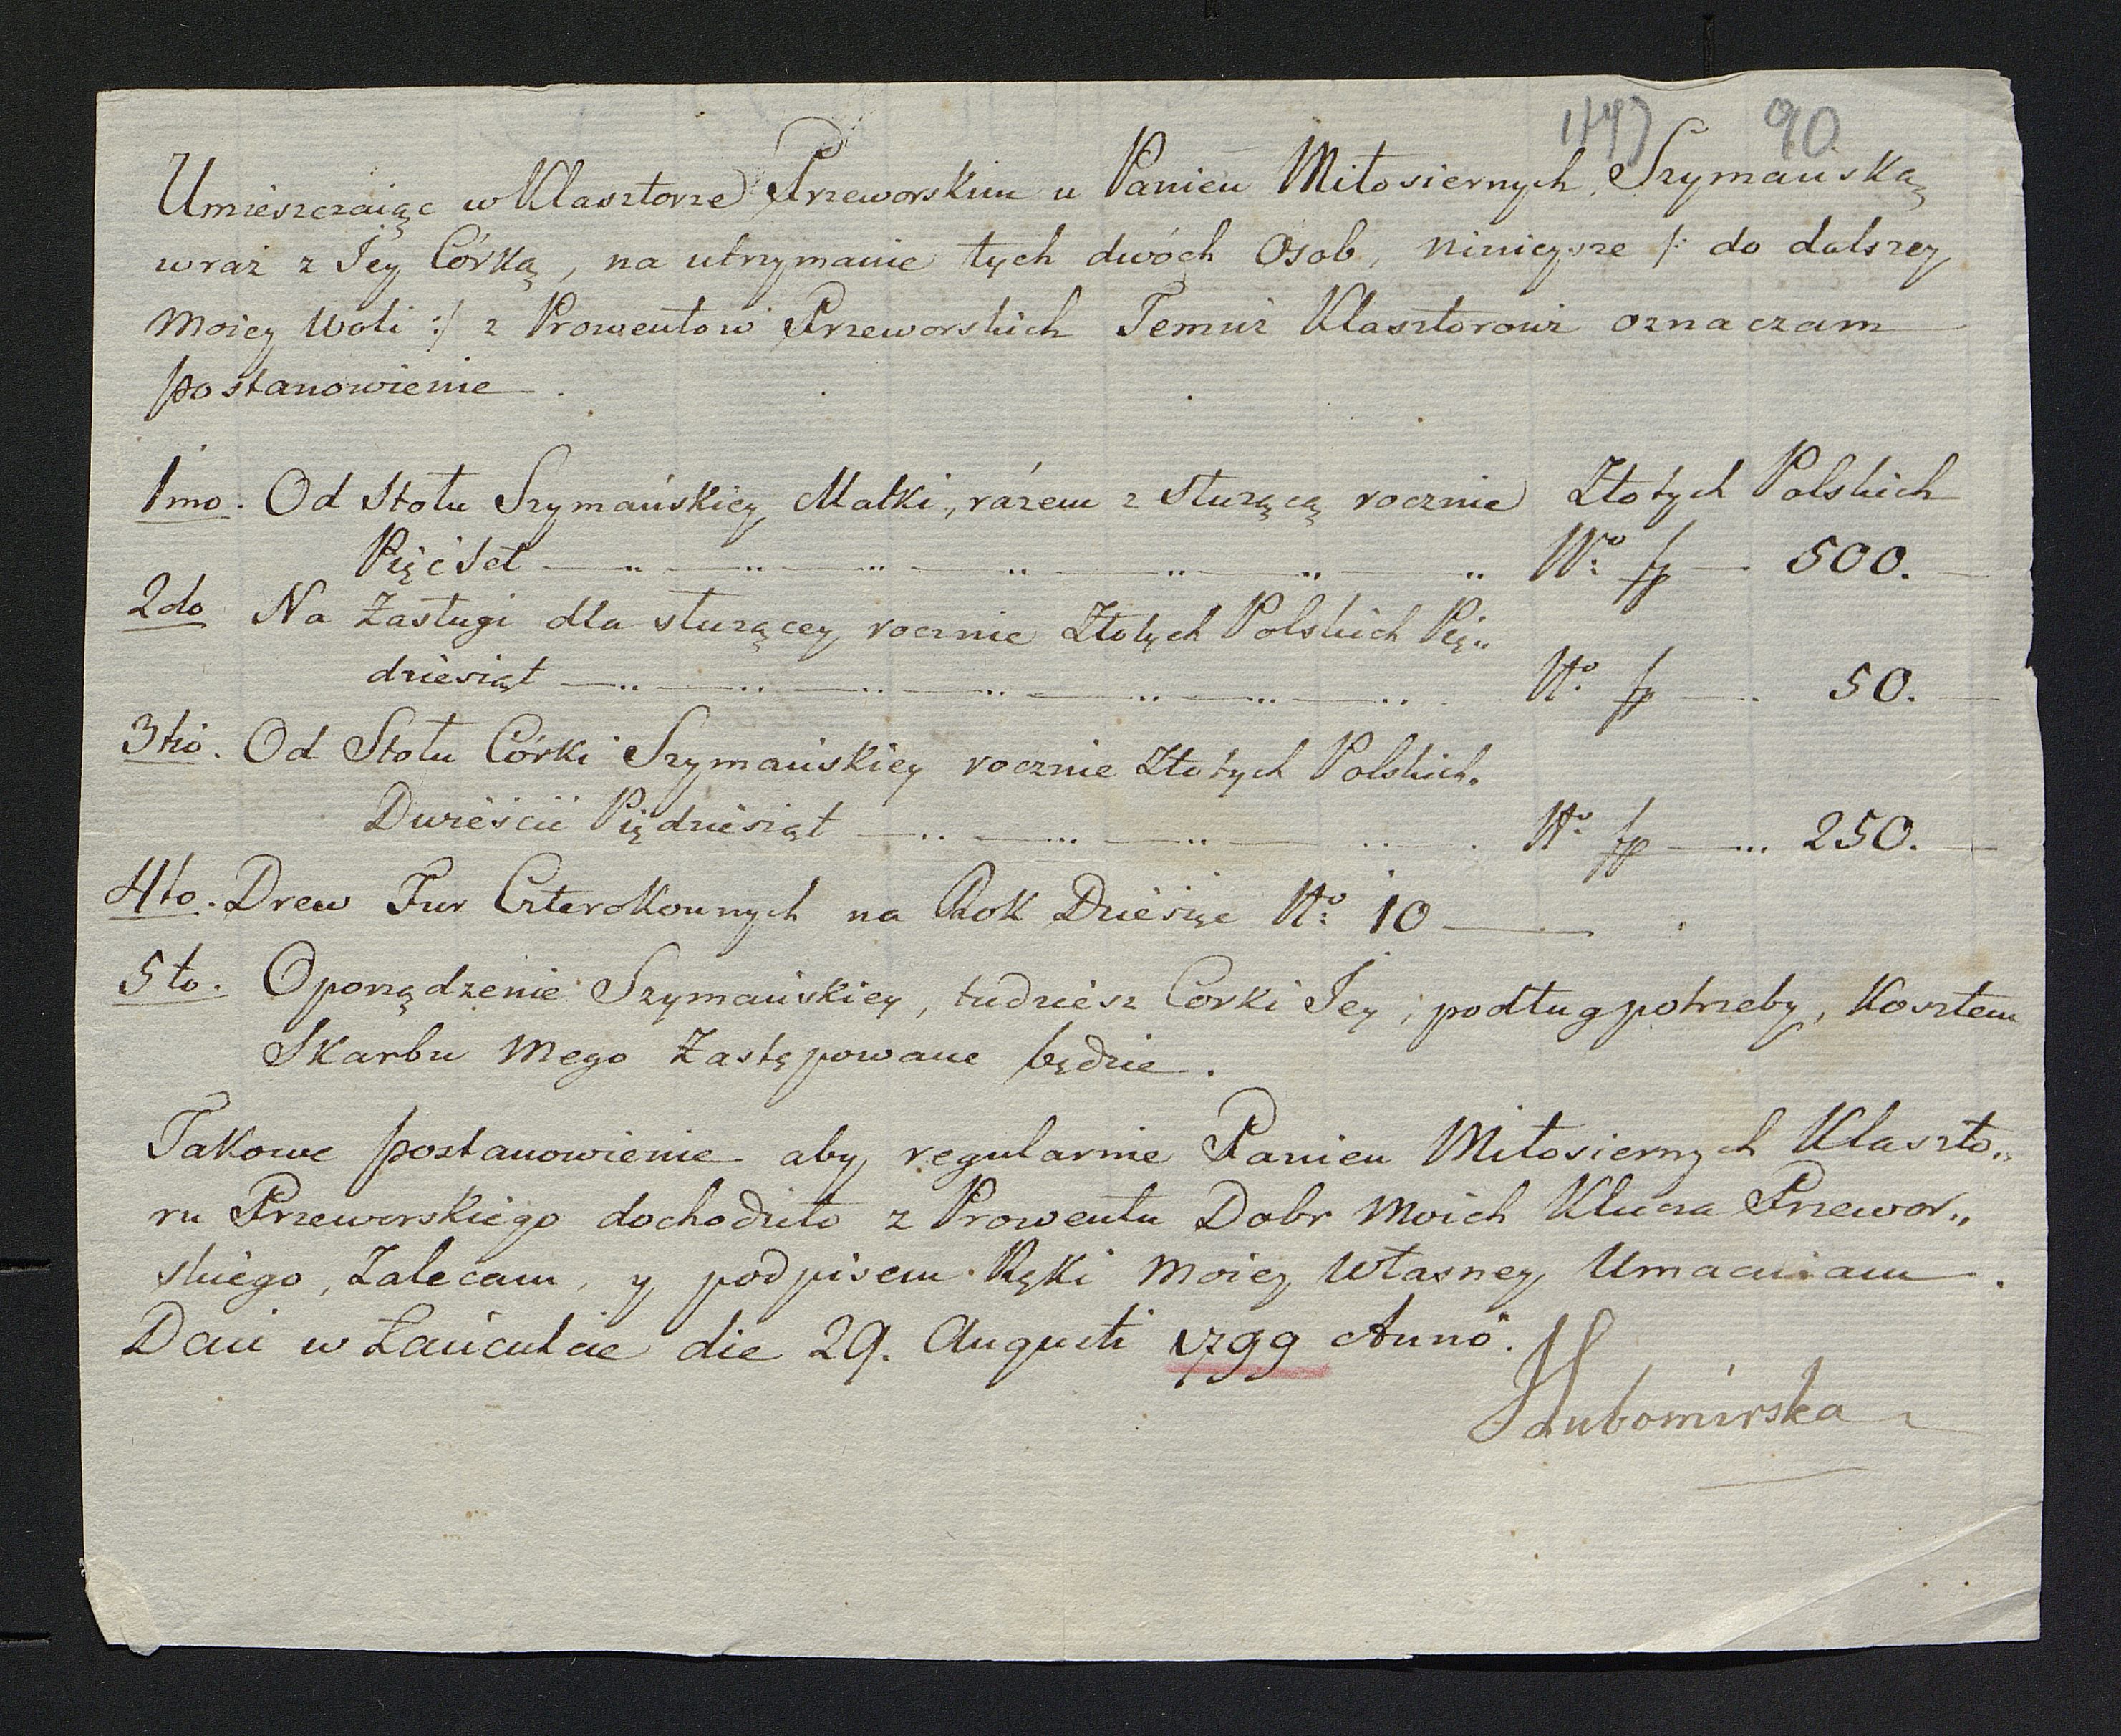 90
Umieszczaiąc w Klasztorze Przeworskim u Panien Miłosiernych Szymańską
wraz z Jey Córką, na utrzymanie tych dwóch Osob, ninieysze /: do dalszey
Moiey Woli :/ z Prowentow Przeworskich Temuż Klasztorowi oznaczam
postanowienie.
1mo. Od Stołu Szymańskiey Matki, rázem z służącą rocznie Złotych Polskich
Pięćset — Nº fp — 500.
2do Na Zasługi dla służącey rocznie Złotych Polskich Pię„
dziesiąt — Nº fp — 50.
3tio. Od Stołu Córki Szymańskiey rocznie Złotych Polskich.
Dwieście Piędziesiąt — Nº fp — 250.
4to. Drew Fur Czterokonnych na Rok Dziesięc Nº 10 —
5to. Oporządzenie Szymańskiey, tudziesz Corki Jey, podług potrzeby, Kosztem
Skarbu Mego Zastępowane będzie.
Takowe postanowienie aby regularnie Panien Miłosiernych Klaszto„
ru Przeworskiego dochodziło z Prowentu Dobr Moich Klucza Przewor„
skiego, Zalecam, y podpisem Ręki Moiey Własney Umacniam.
Dan w Łańcucie die 29. Augusti 1799 Anno.
Lubomirska